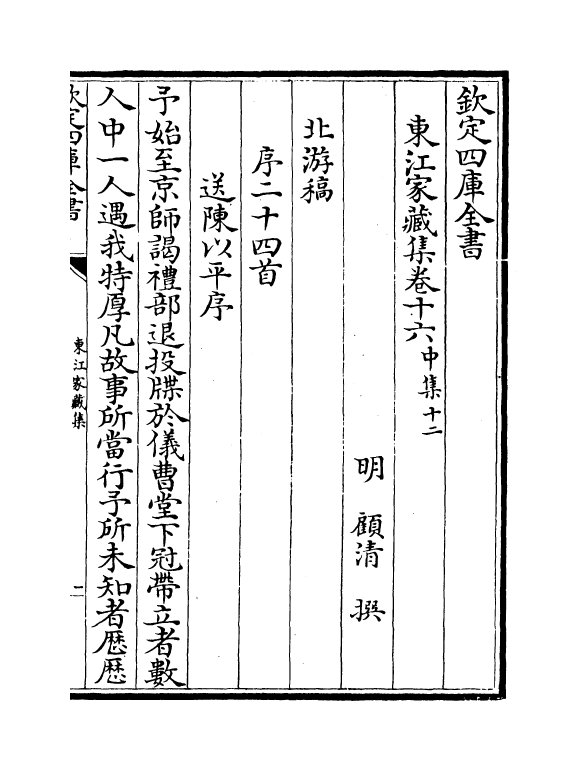 欽定四庫全書
東江家藏集卷十六中集十二
明 顧清 撰
北游稿
序二十四首
送陳以平序
予始至京師謁禮部退投牒於儀曹堂下冠帶立者數
人中一人遇我特厚凡故事所當行予所未知者歴歴
欽定四庫全書
東江家藏集